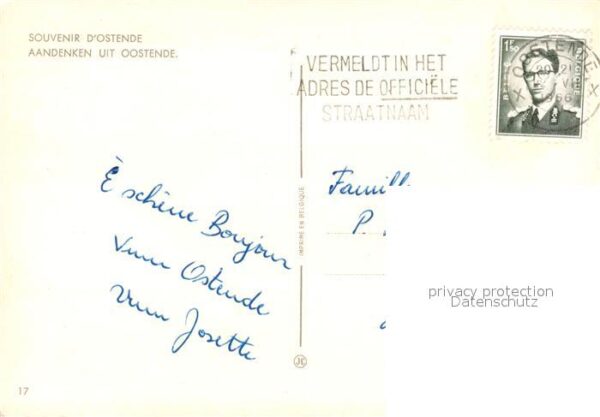 SOUVENIR D'OSTENDE
AANDENKEN UIT OOSTENDE.
VERMELDT IN HET
ADRES DE OFFICIËLE
STRAATNAAM
1,50
BELGIQUE
È schéine Bonjour
vum Ostende
vum Josette
IMPRIMÉ EN BELGIQUE
Famill
P.
privacy protection
Datenschutz
JE
17